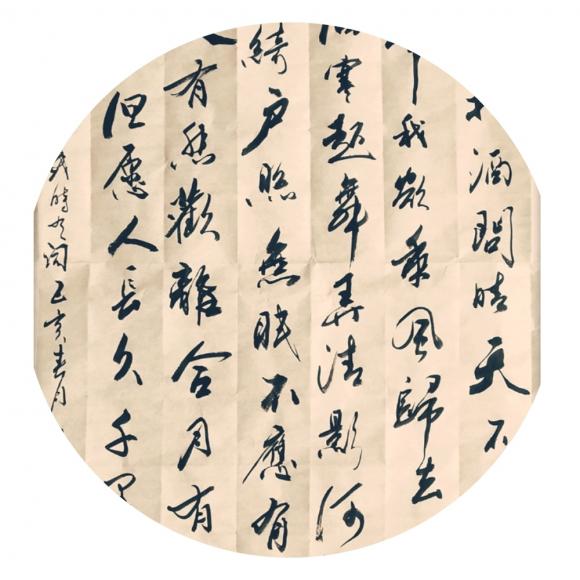 酒問晴天不
我欲乘風歸去
寒起舞弄清影何
綺户照無眠不應有
有悲歡離合月有
但愿人長久千里
詞己亥春月